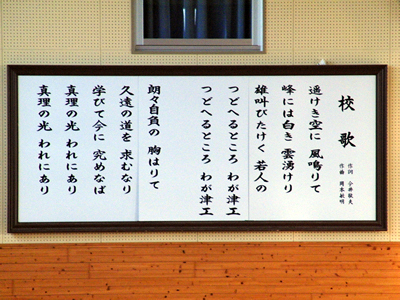 校歌
作詞 今井敏夫
作曲 岡本敏明
遥けき空に 風鳴りて
峰には白き 雲湧けり
雄叫びたけく 若人の
つどへるところ わが津工
つどへるところ わが津工
朗々自負の 胸はりて
久遠の道を 求むなり
学びて今に 究めなば
真理の光 われにあり
真理の光 われにあり